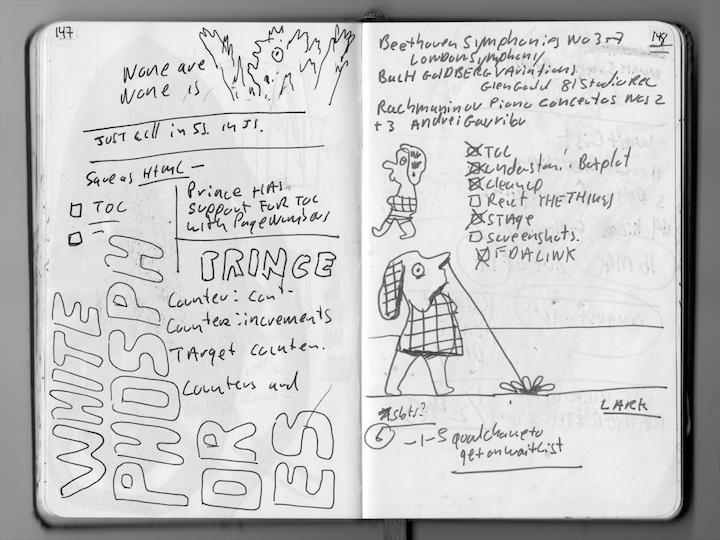 147
None are
None is
JUST call in SS. in JS.
Save as HTML —
TOC
Prince HAS
support FOR TOC
with PageNumbers
PRINCE
Counter: cont-
Counter: increments
TArget counter.
Counters and
WHITE
PHOSPH
OR
ES
148
Beethoven Symphonies No 3+7
London Symphony
BacH GOLDBERG VAriations
Glen Gould 81 Studio Rec
Rachmaninov Piano Concertos Nos 2
+3 Andrei Gavrilov
TOC
understand Boxplot
cleanup
THE THING
STAge
Screenshots.
FDA LINK
Slots?
LARK
6 — 1-5 good chance to
get on waitlist